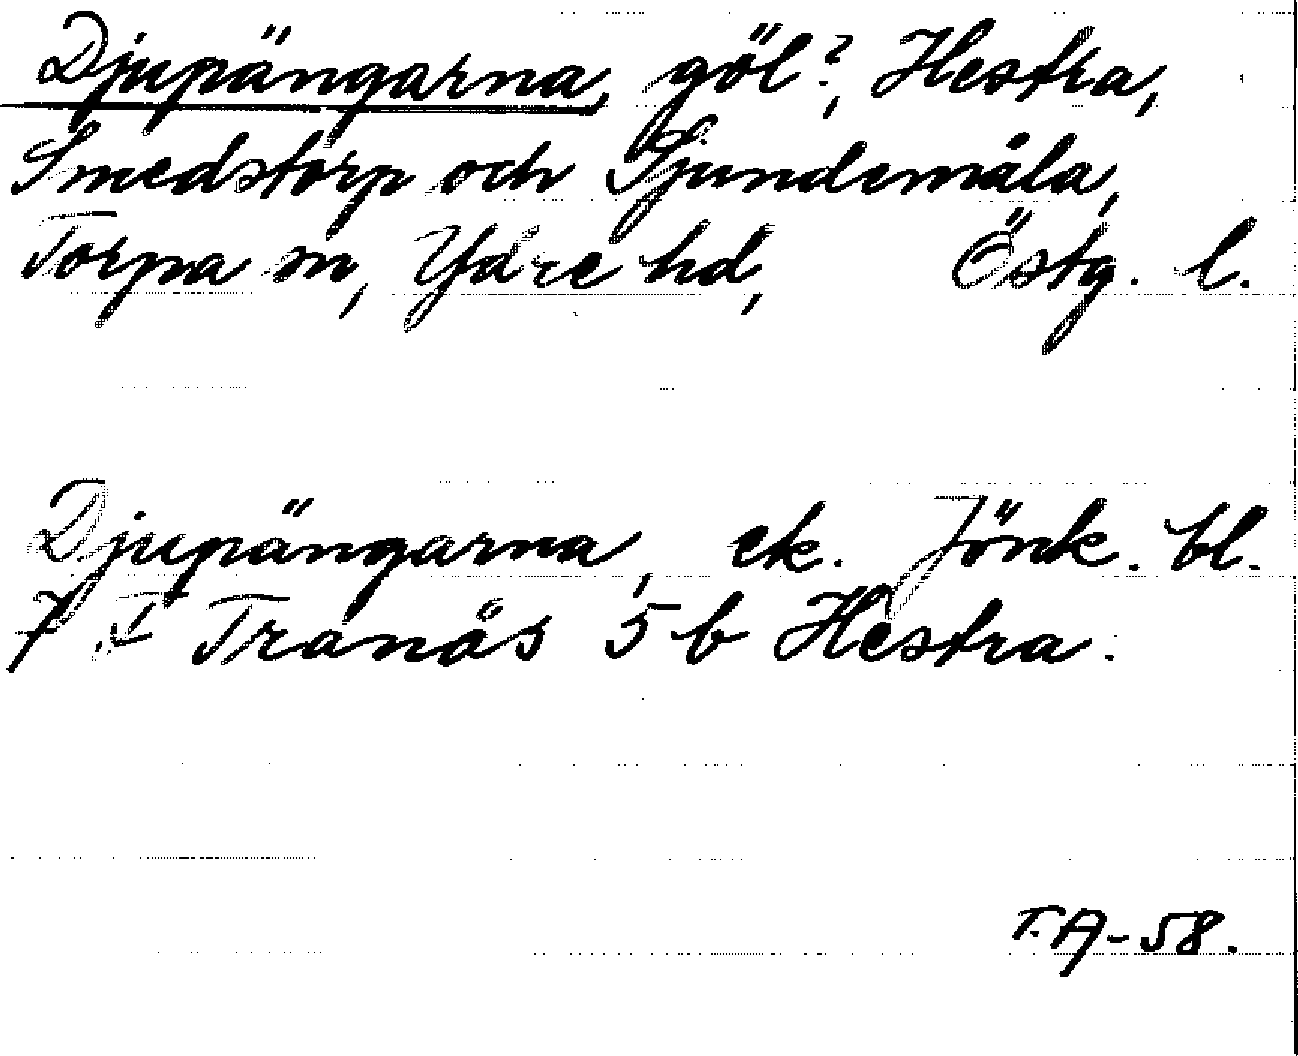 Djupängarna, göl?, Hestra,
Smedstorp och Sjundemåla,
Torpa sn, Ydre hd, Östg. l.
Djupängarna, ek. Jönk. bl.
7 Tranås 5b Hestra.
T.A-58.